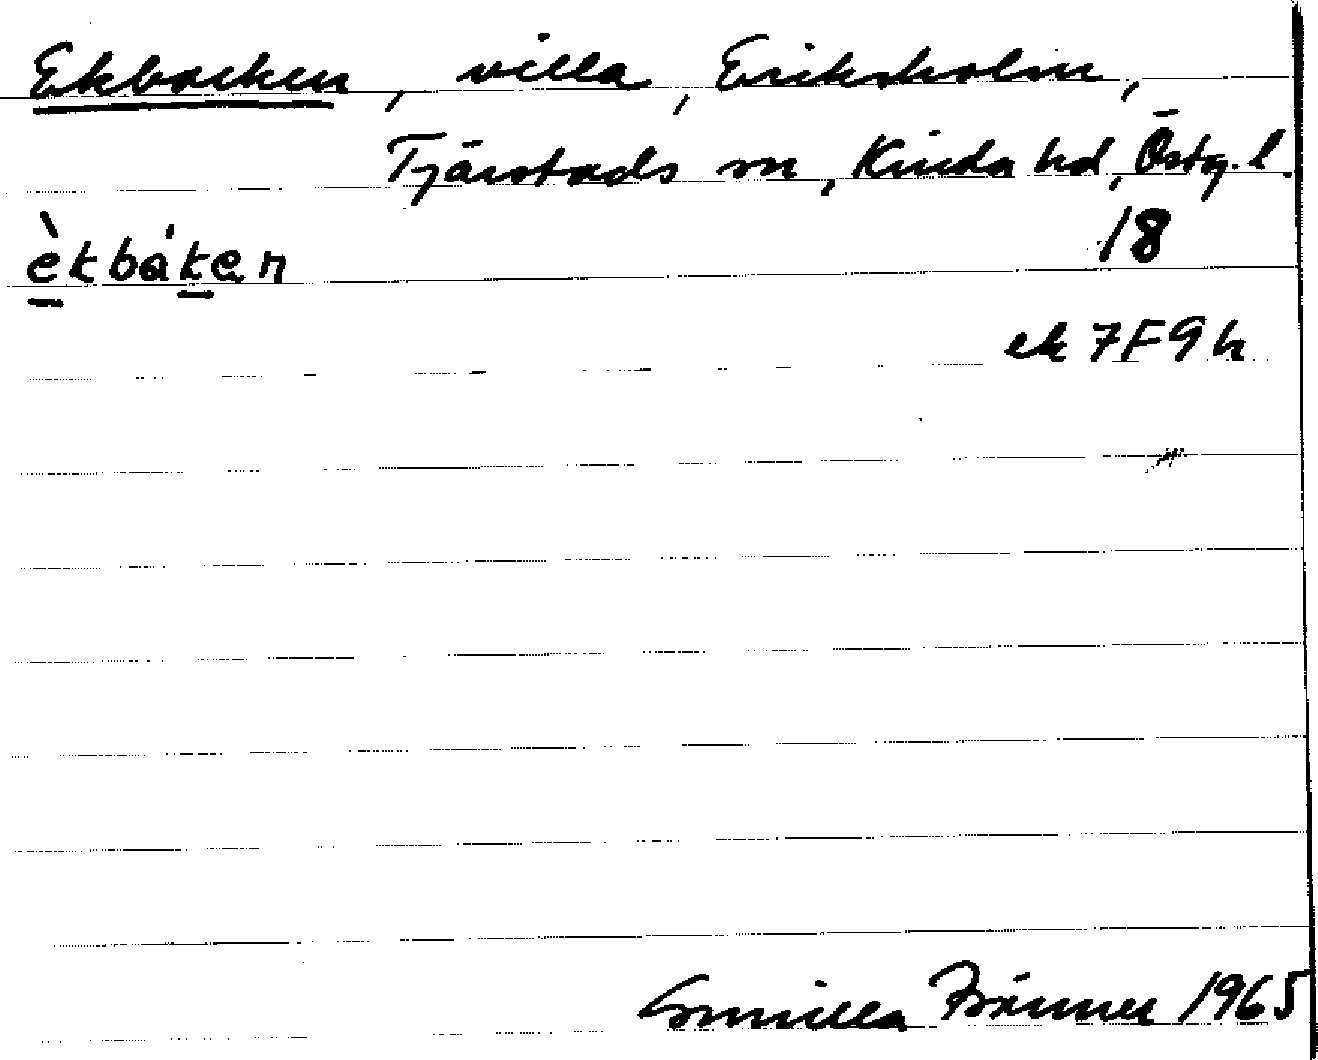 Ekbacken, villa, Eriksholm,
Tjärstads sn, Kinda hd, Östg. l.
èkbáken 18
ek 7F9h
Gunilla Bränner 1965